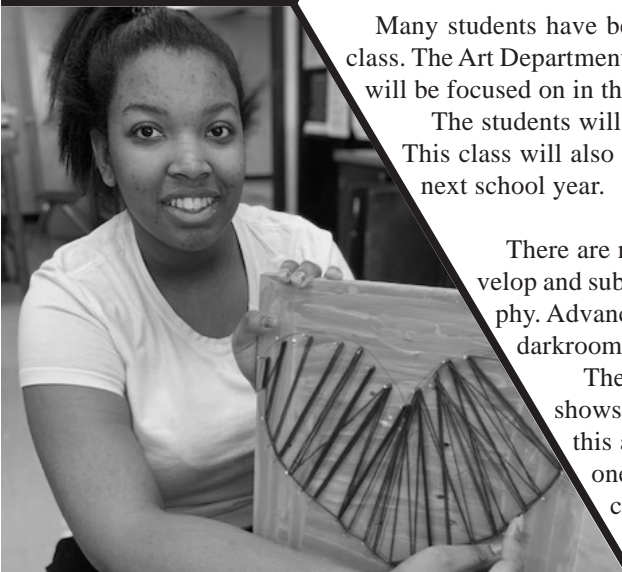 Many students have be
class. The Art Department
will be focused on in th
The students will
This class will also
next school year.
There are
velop and sub
phy. Advanc
darkroom
The
shows
this a
one
c